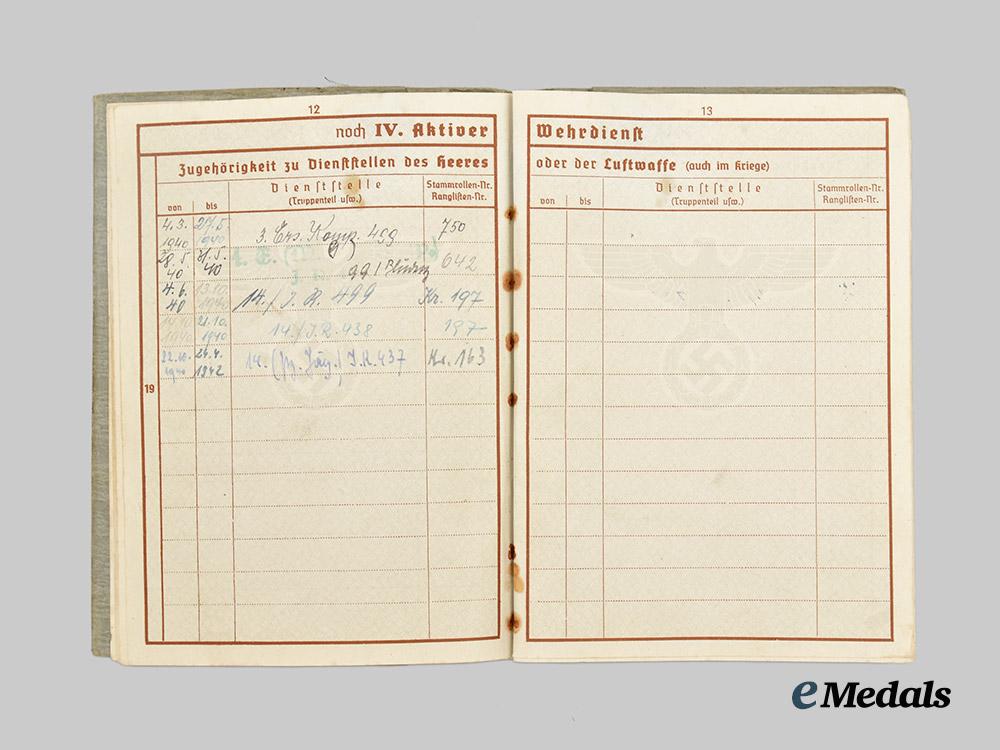 12
noch IV. Aktiver
Zugehörigkeit zu Dienststellen des Heeres
von bis
Dienststelle
(Truppenteil usw.)
Stammrollen-Nr.
Ranglisten-Nr.
4.3. 1940 27.5. 1940 3. Ers. Komp. 499 750
28.5. 40 31.5. 40 642
4.6. 40 13.10. 1940 14./ J. R. 499 Kr. 197
1940 21.10. 1940 14./J.R. 438 197
22.10. 1940 24.4. 1942 14. J.R. 437 Kr. 163
19
13
Wehrdienst
oder der Luftwaffe (auch im Kriege)
von bis
Dienststelle
(Truppenteil usw.)
Stammrollen-Nr.
Ranglisten-Nr.
eMedals